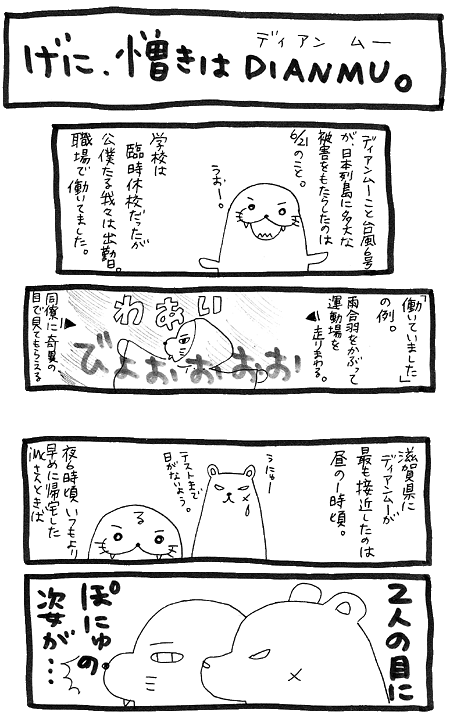 ディアン ムー
げに、憎きはDIANMU。
ディアンムーこと台風6号
が、日本列島に多大な
被害をもたらしたのは
6/21のこと。
うおー。
学校は
臨時休校だったが
公僕たる我々は出勤日。
職場で働いてました。
「働いていました」
の例。
雨合羽をかぶって
運動場を
走りまわる。
わあい
びょおおおお
同僚に奇異の
目で見てもらえる
滋賀県に
ディアンムーが
最も接近したのは
昼の1時頃。
うにゅー
テストまで
日がないよう。
る
夜6時頃いつもより
早めに帰宅した
2人の目に
ぽにゅの。
姿が…